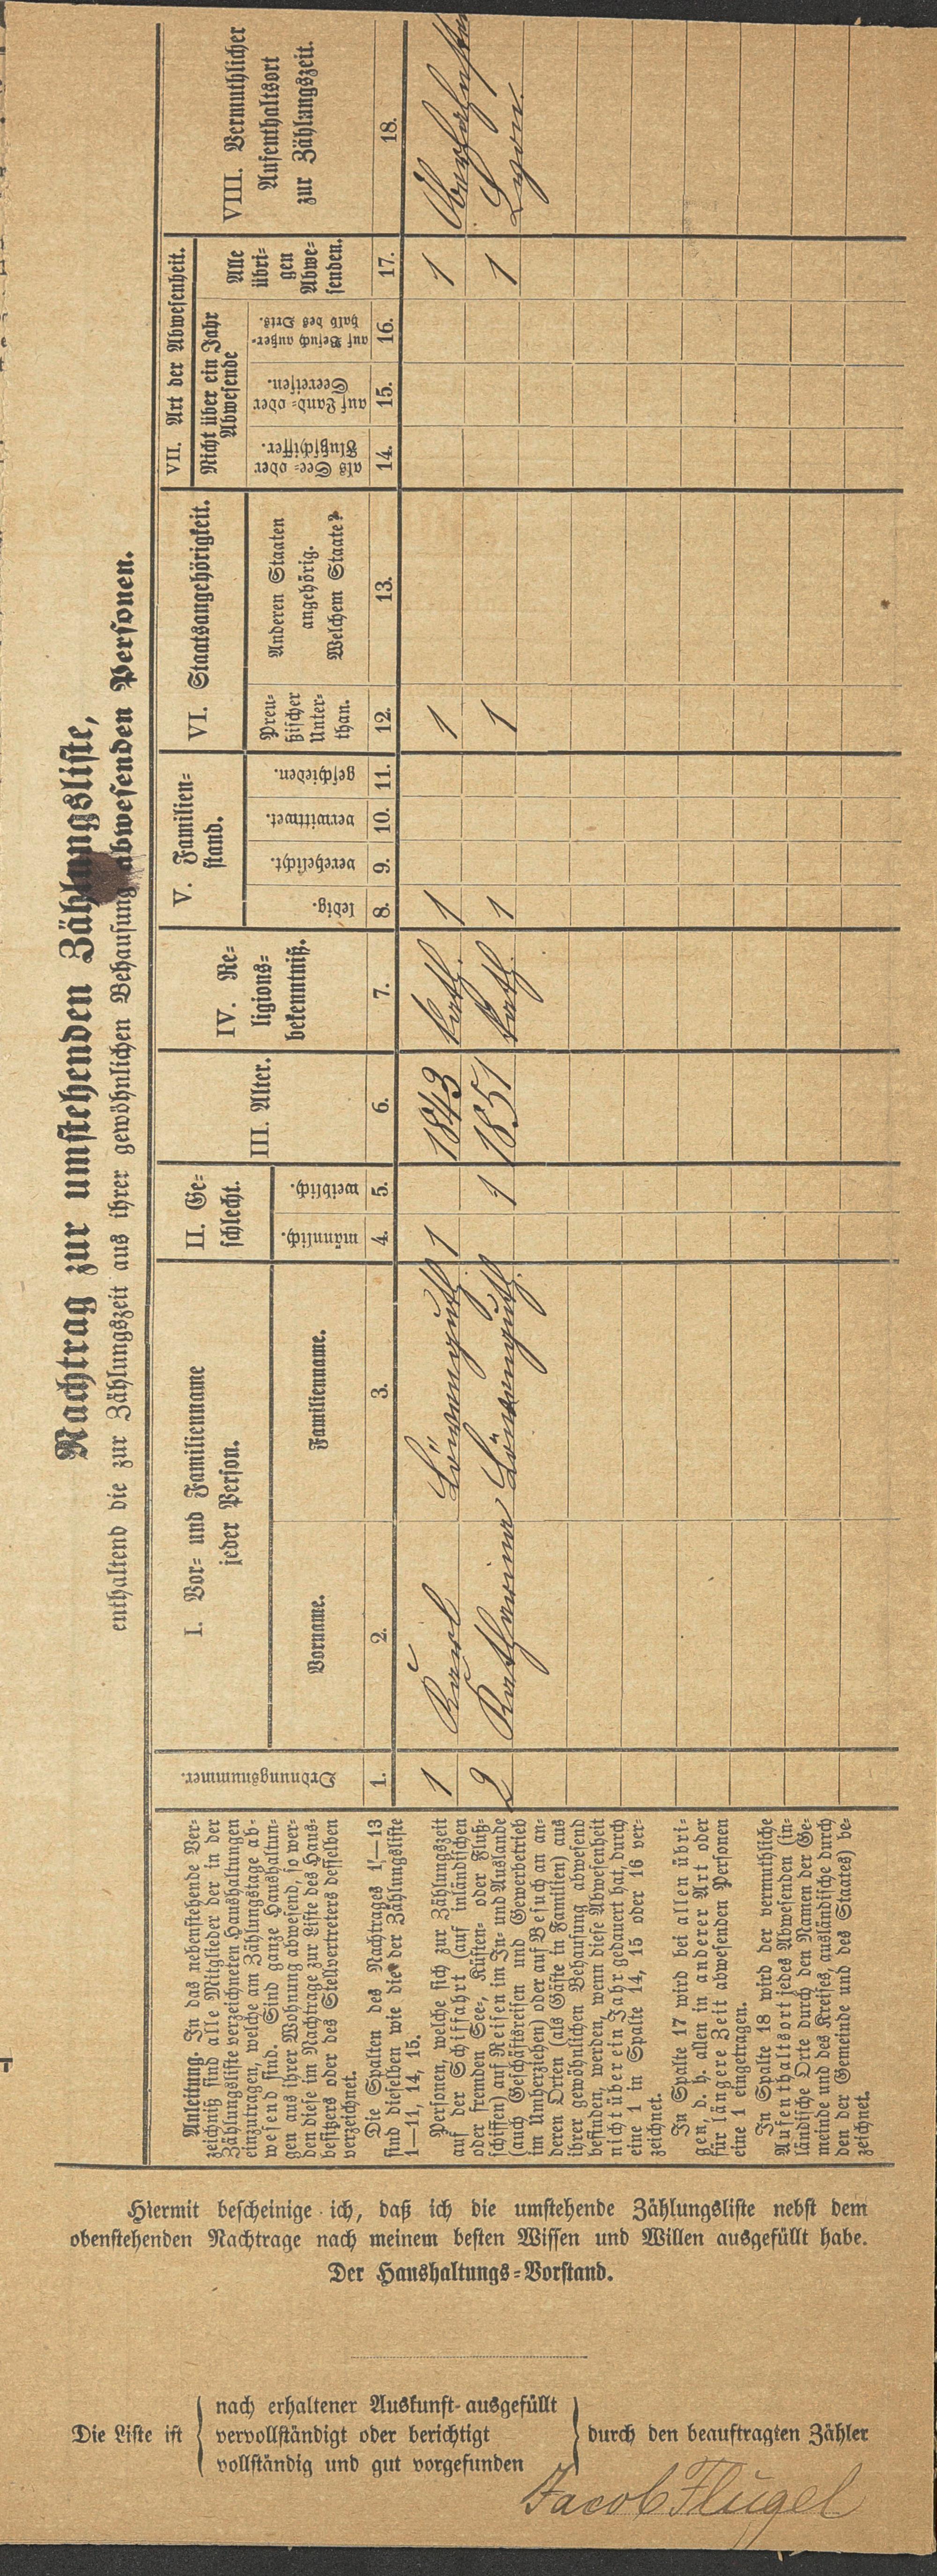 Nachtrag zur umstehenden Zählungsliste,
enthaltend die zur Zählungszeit aus ihrer gewöhnlichen Behausung abwesenden Personen.
Anleitung. In das nebenstehende Ver-
zeichniß sind alle Mitglieder der in der
Zählungsliste verzeichneten Haushaltungen
einzutragen, welche am Zählungstage ab-
wesend sind. Sind ganze Haushaltun-
gen aus ihrer Wohnung abwesend, so wer-
den diese im Nachtrage zur Liste des Haus-
besitzers oder des Stellvertreters desselben
verzeichnet.
Die Spalten des Nachtrages 1—13
sind dieselben wie die der Zählungsliste
1—11, 14, 15.
Personen, welche sich zur Zählungszeit
auf der Schiffahrt (auf inländischen
oder fremden See-, Küsten- oder Fluß-
schiffen) auf Reisen im In- und Auslande
(auch Geschäftsreisen und Gewerbetrieb
im Umherziehen) oder auf Besuch an an-
deren Orten (als Gäste in Familien) aus
ihrer gewöhnlichen Behausung abwesend
befinden, werden, wenn diese Abwesenheit
nicht über ein Jahr gedauert hat, durch
eine 1 in Spalte 14, 15 oder 16 ver-
zeichnet.
In Spalte 17 wird bei allen übri-
gen, d. h. allen in anderer Art oder
für längere Zeit abwesenden Personen
eine 1 eingetragen.
In Spalte 18 wird der vermuthliche
Aufenthaltsort jedes Abwesenden (in-
ländische Orte durch den Namen der Ge-
meinde und des Kreises, ausländische durch
den der Gemeinde und des Staates) be-
zeichnet.
Ordnungsnummer.
I. Vor- und Familienname
jeder Person.
Vorname.
Familienname.
II. Ge-
schlecht.
männlich.
weiblich.
III. Alter.
IV. Re-
ligions-
bekenntniß.
V. Familien-
stand.
ledig.
verehelicht.
verwittwet.
geschieden.
VI. Staatsangehörigkeit.
Preu-
ßischer
Unter-
than.
Anderen Staaten
angehörig.
Welchem Staate?
VII. Art der Abwesenheit.
Nicht über ein Jahr
Abwesende
als See- oder
Flußschiffer.
auf Land- oder
Seereisen.
auf Besuch außer-
halb des Orts.
Alle
übri-
gen
Abwe-
senden.
VIII. Vermuthlicher
Aufenthaltsort
zur Zählungszeit.
1. 2. 3. 4. 5. 6. 7. 8. 9. 10. 11. 12. 13. 14. 15. 16. 17. 18.
1 Karl Löwenguth 1 1843 kath. 1 1 1
2 Katharina Löwenguth 1 1851 kath. 1 1 1 Lyon.
Hiermit bescheinige ich, daß ich die umstehende Zählungsliste nebst dem
obenstehenden Nachtrage nach meinem besten Wissen und Willen ausgefüllt habe.
Der Haushaltungs-Vorstand.
Die Liste ist
nach erhaltener Auskunft ausgefüllt
vervollständigt oder berichtigt
vollständig und gut vorgefunden
durch den beauftragten Zähler
Jacob Flügel